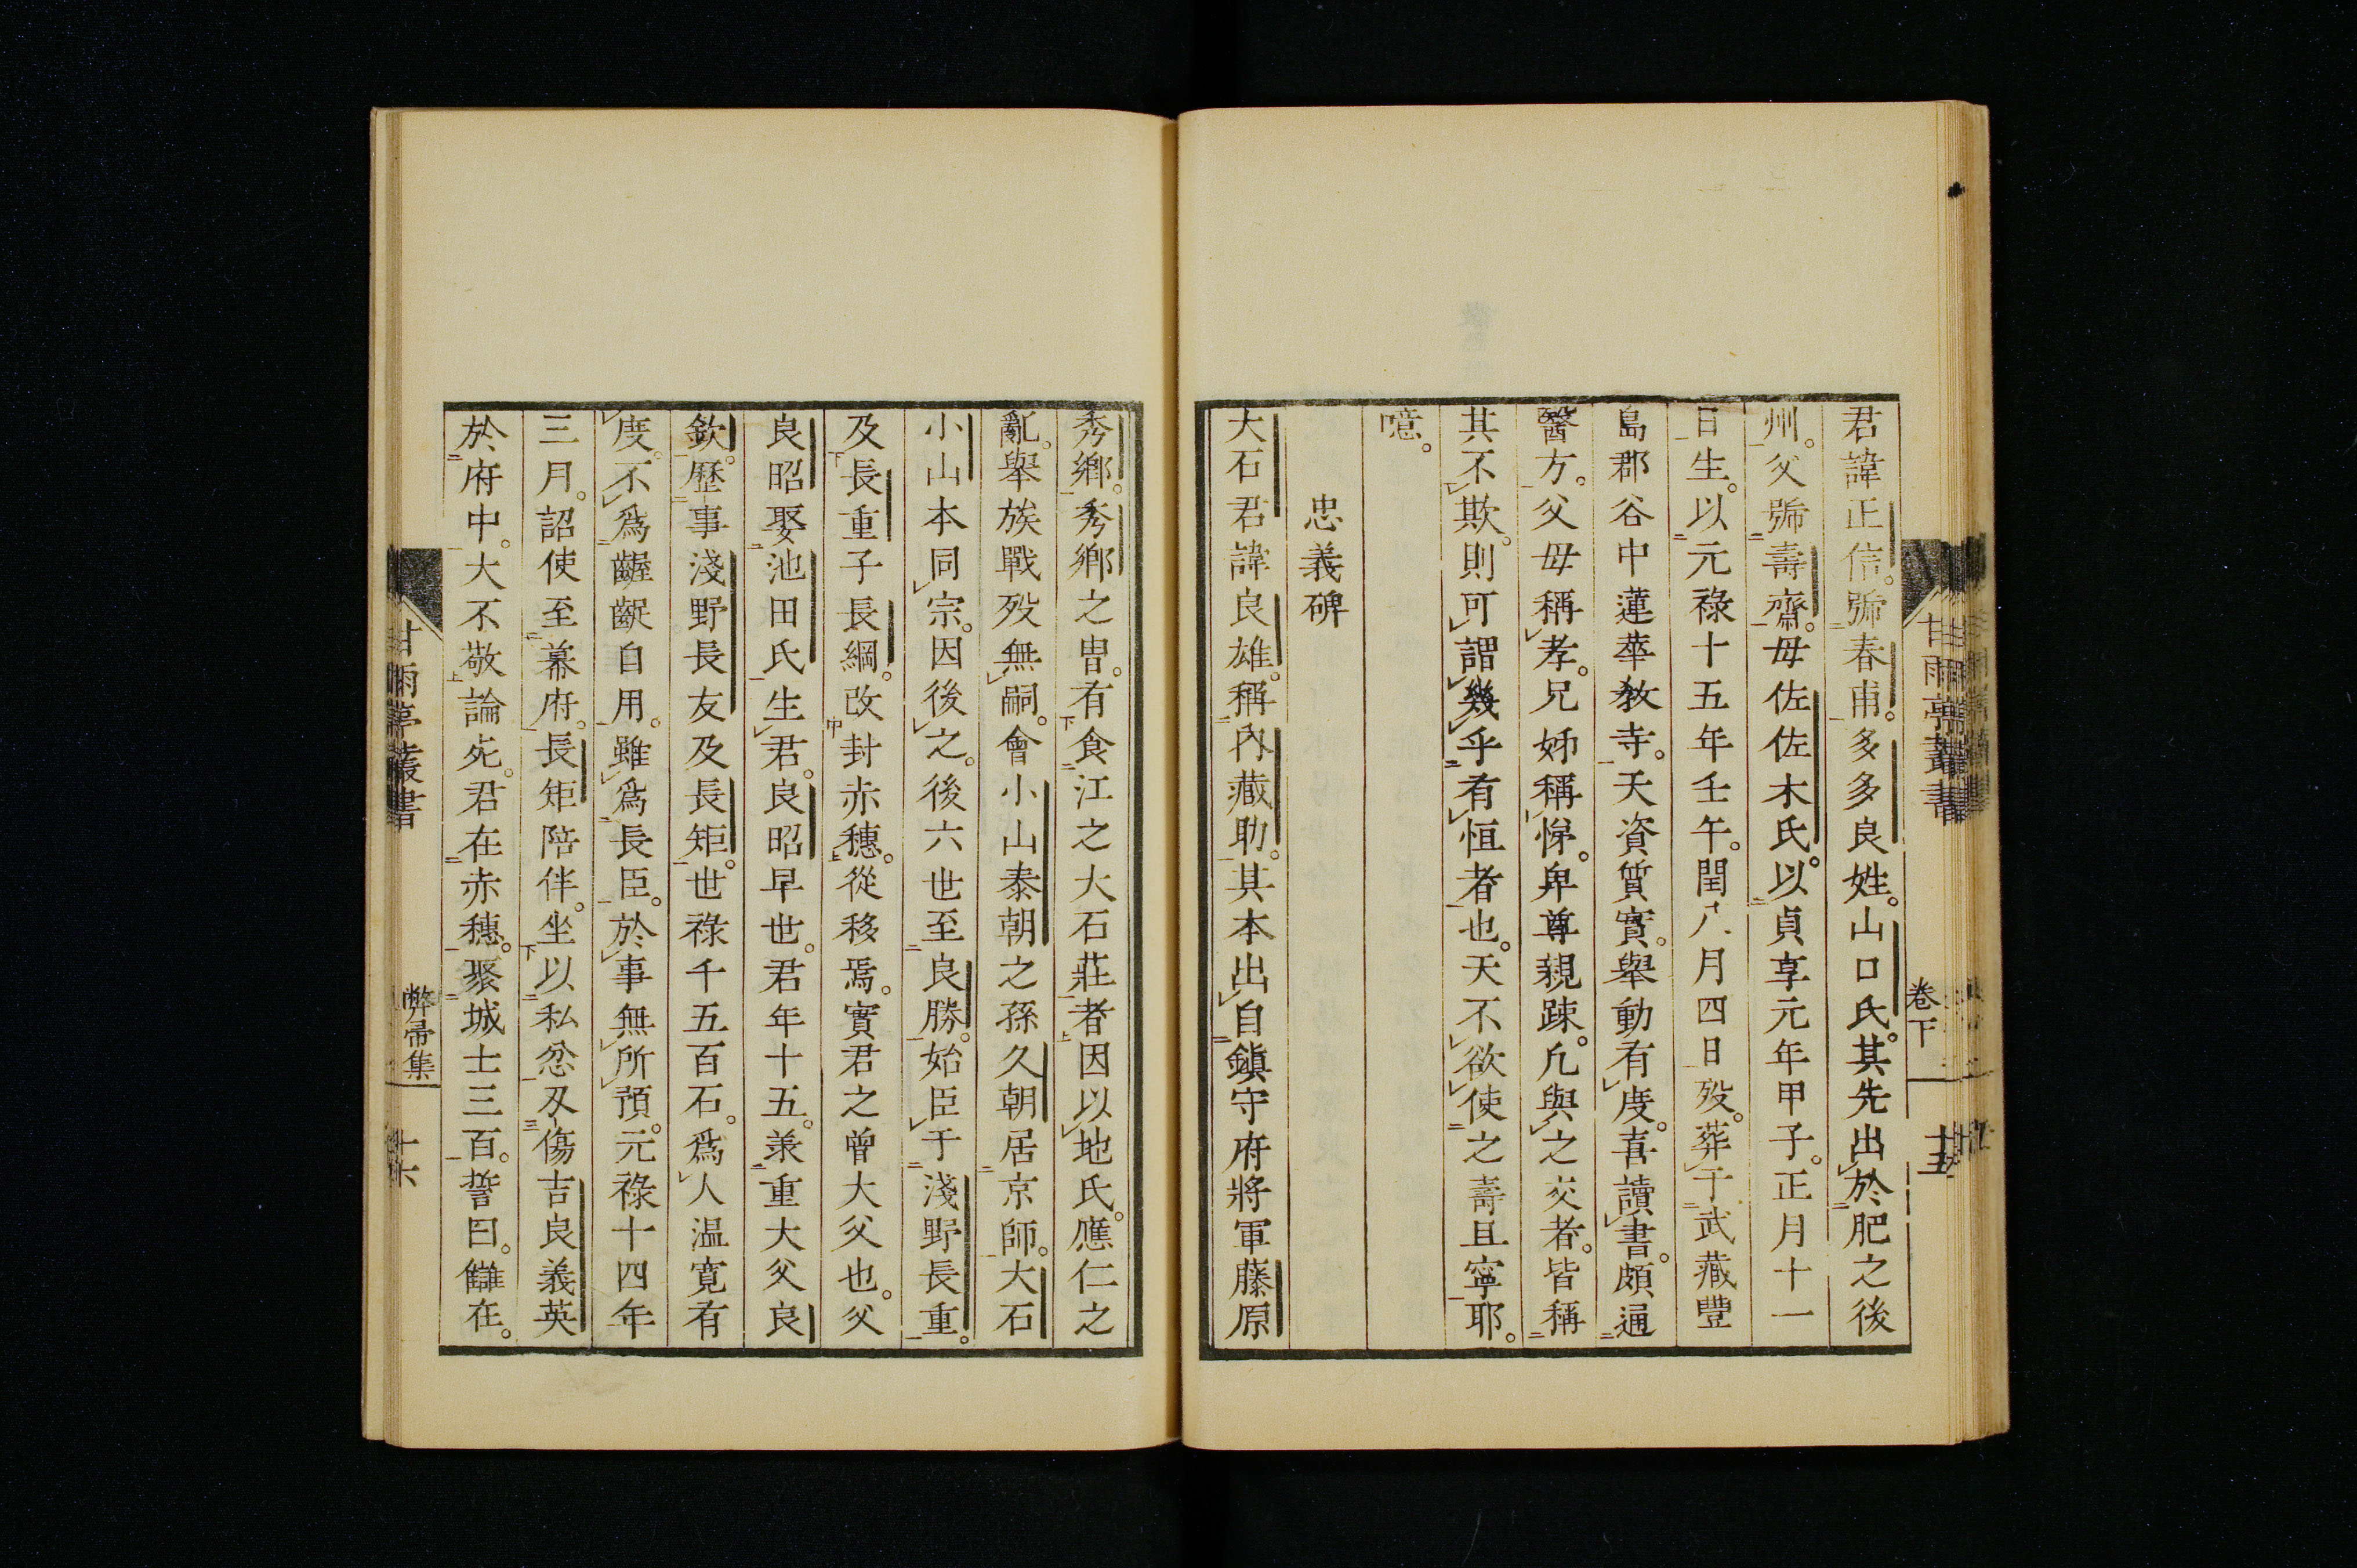 君諱正信。號春甫。多多良姓。山口氏。其先出於肥之後
州。父號壽齋。母佐佐木氏。以貞享元年甲子。正月十一
日生。以元祿十五年壬午。閏八月四日歿。葬于武藏豐
島郡谷中蓮華教寺。天資質實。舉動有度。喜讀書。頗通
醫方。父母稱孝。兄姊稱悌。卑尊親疎。凡與之交者。皆稱
其不欺。則可謂幾乎有恒者也。天不欲使之壽且寧耶。
噫。
忠義碑
大石君諱良雄。稱內藏助。其本出自鎮守府將軍藤原
秀鄉。秀鄉之冑。有食江之大石莊者。因以地氏。應仁之
亂。舉族戰歿無嗣。會小山泰朝之孫久朝居京師。大石
小山本同宗。因後之。後六世至良勝。始臣于淺野長重。
及長重子長綱。改封赤穗。從移焉。實君之曾大父也。父
良昭娶池田氏生君。良昭早世。君年十五。兼重大父良
欽。歷事淺野長友及長矩。世祿千五百石。爲人温寬有
度。不爲齷齪自用。雖爲長臣。於事無所預。元祿十四年
三月。詔使至幕府。長矩陪伴。坐以私忿刄傷吉良義英
於府中。大不敬論死。君在赤穗。聚城士三百。誓曰。讎在。
甘雨亭叢書
卷下
十五
甘雨亭叢書
弊帚集
十六